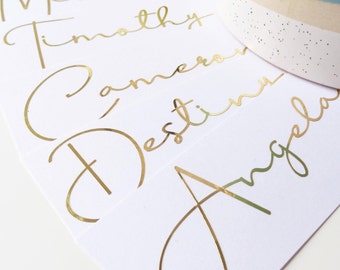 Timothy
Cameron
Destiny
Angela